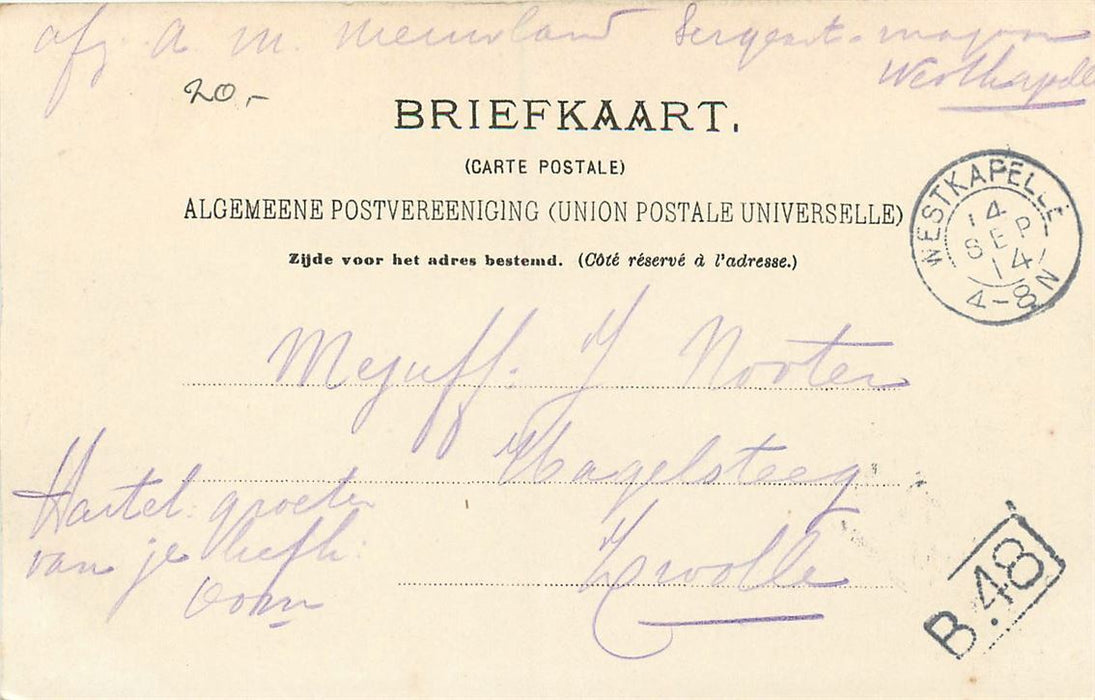 afz. A. M. Nieuwland Sergeant-majoor
Westkapelle
20,-
BRIEFKAART.
(CARTE POSTALE)
ALGEMEENE POSTVEREENIGING (UNION POSTALE UNIVERSELLE)
Zijde voor het adres bestemd. (Côté réservé à l'adresse.)
WESTKAPELLE
14
SEP
14
4-8N
Mejuff. J Nooter
Hagelsteeg
Zwolle
Hartel. groeten
van je liefh.
Oom
B.48